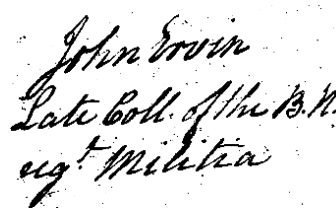 John Ervin
Late Coll. of the B.
regt. Militia